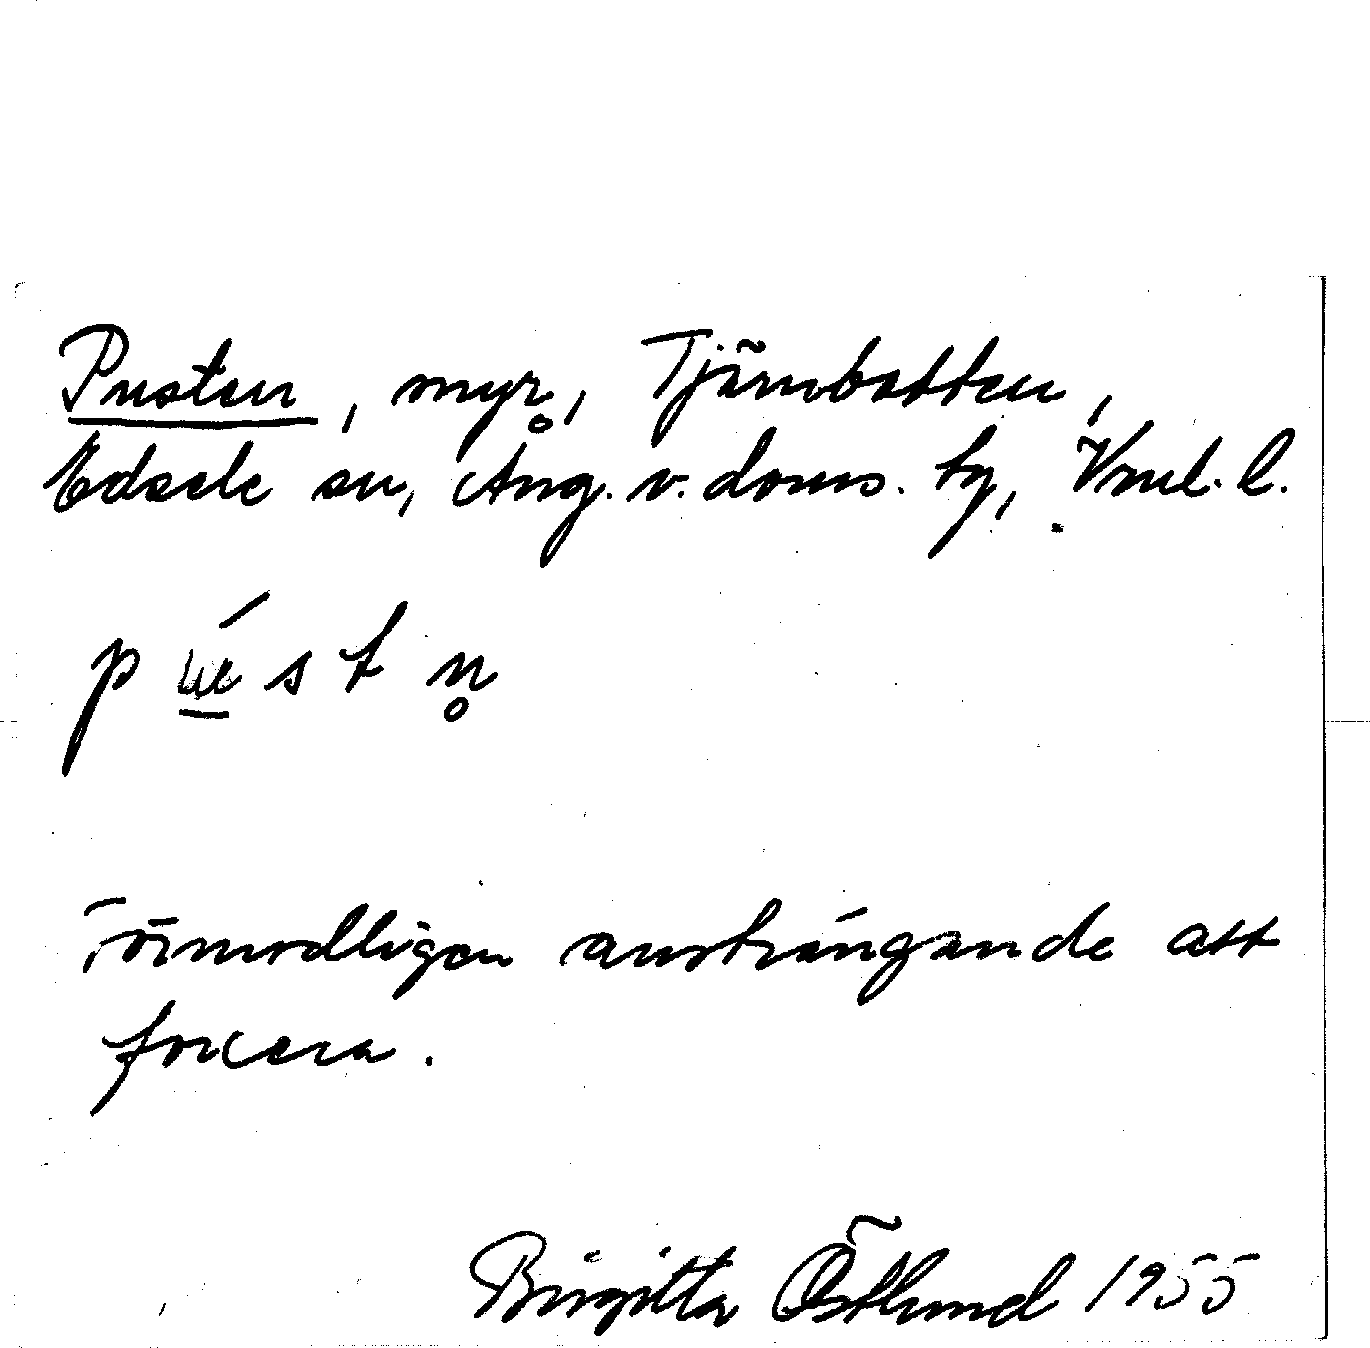 Pusten, myr, Tjärnbotten,
Edsele sn, Ång. v. doms. tg, Vnrl. l.
p ú̱ s t n̥
Förmodligen ansträngande att
forcera.
Birgitta Östlund 1955